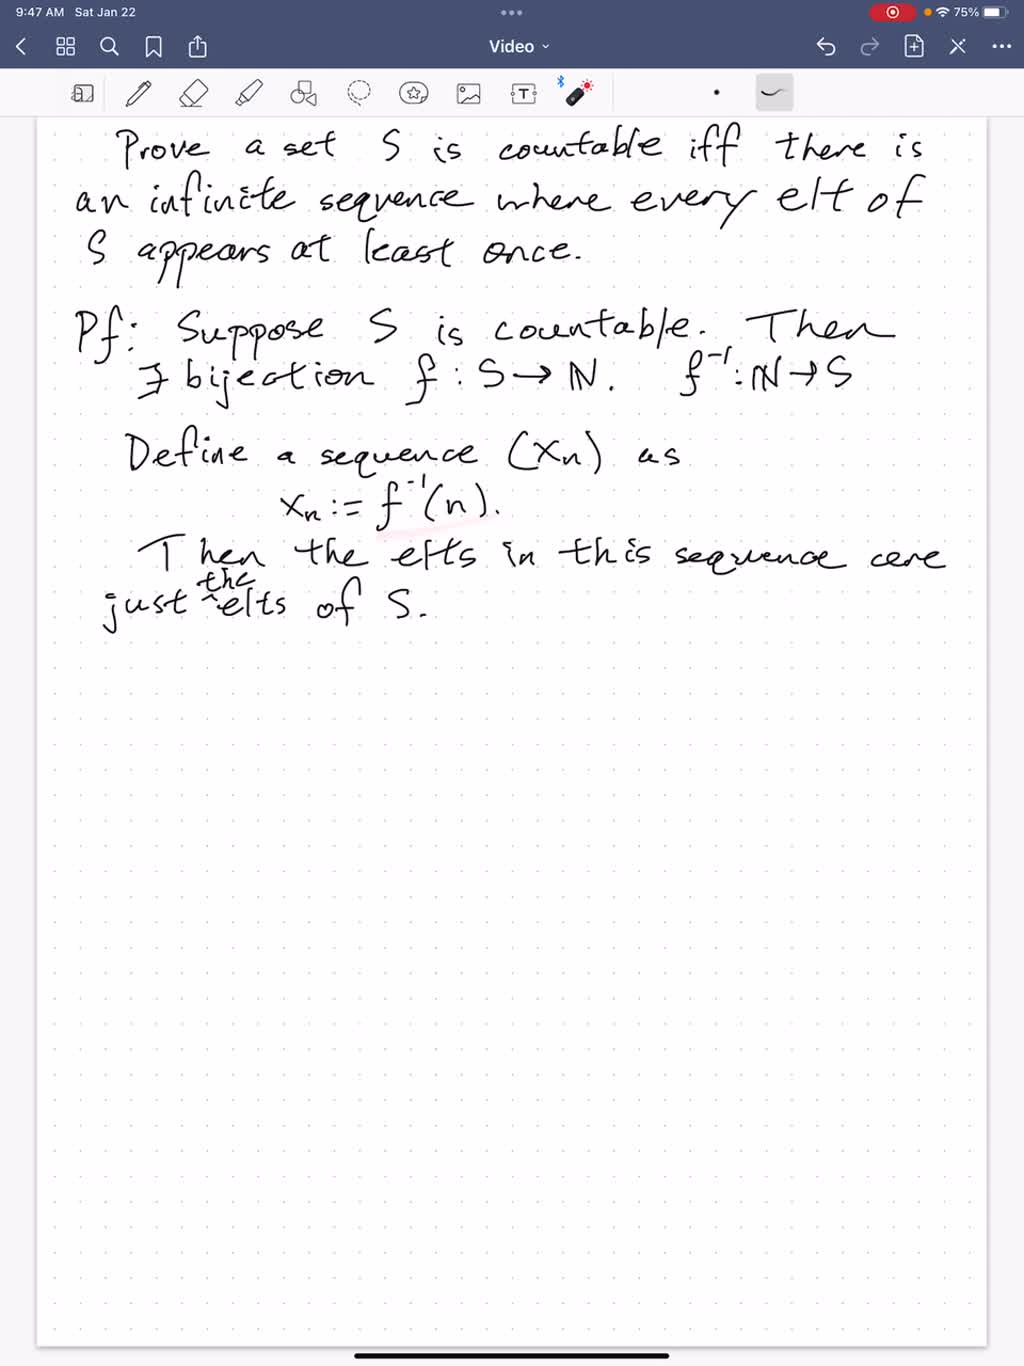 9:47 AM Sat Jan 22
75%
Video
T
Prove a set S is countable iff there is
an infinite sequence where every elt of
S appears at least once.
Pf: Suppose S is countable. Then
∃ bijection f : S → ℕ. f⁻¹: ℕ → S
Define a sequence (xₙ) as
xₙ := f⁻¹(n).
Then the elts in this sequence are
just ^the elts of S.